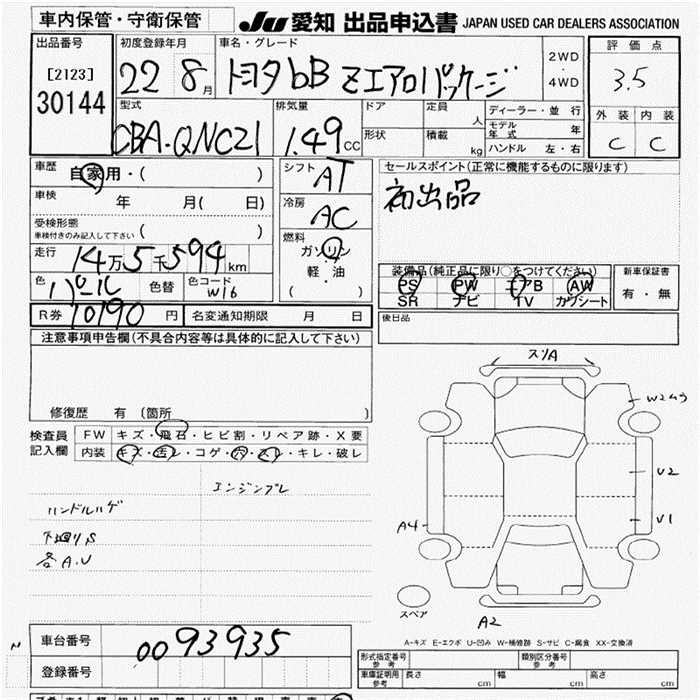 車内保管・守衛保管
JU 愛知 出品申込書 JAPAN USED CAR DEALERS ASSOCIATION
出品番号 [2123] 30144
初度登録年月 22 8月
車名・グレード トヨタbB Zエアロパッケージ
2WD・4WD
評価点 3.5
外装 内装
C C
型式 CBA-QNC21
排気量 1.49cc
ドア 定員 人
形状 積載 kg
ディーラー・並行
モデル年式 年
ハンドル 左・右
車歴 自家用・( )
車検 年 月( 日)
受検形態 車検付きのみ記入して下さい ( )
走行 14万5千594km
色 パール 色替 色コード W16
シフト AT
冷房 AC
燃料 ガソリン
軽・油
( )
セールスポイント(正常に機能するものに限ります)
初出品
装備品(純正品に限り○をつけてください)
PS PW エアB AW
SR ナビ TV カワシート
新車保証書
有・無
R券 10190円 名変通知期限 月 日
後日品
注意事項申告欄(不具合内容等は具体的に記入して下さい)
修復歴 有 (箇所 )
検査員記入欄
FW キズ・飛石・ヒビ割・リペア跡・X要
内装 キズ・汚レ・コゲ・穴・スレ・キレ・破レ
エンジンブレ
ハンドルハゲ
下廻りS
各A.U
スリA
W2ムラ
U2
U1
A4
スペア
A2
A-キズ E-エクボ U-凹み W-補修跡 S-サビ C-腐食 XX-交換済
車台番号 0093935
登録番号
N
形式指定番号 参考
類別区分番号 参考
車庫証明用 参考 長さ cm 幅 cm 高さ cm